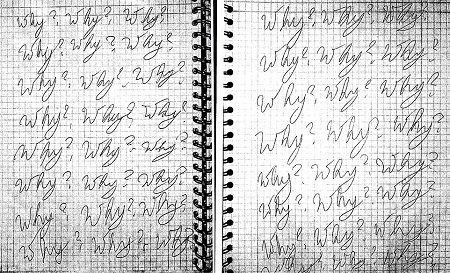 Why?, Why?, Why?
Why?, Why?, Why?
Why?, Why?, Why?
Why?, Why?, Why?
Why?, Why? - Why?
Why?, Why? - Why?
Why?, Why?, Why?
Why?, Why?, Why?
Why?, Why?, Why?
Why?, Why?, Why?
Why?, Why?, Why?
Why?, Why?, Why?
Why?, Why?, Why?
Why?, Why?, Why?
Why?, Why?, Why?